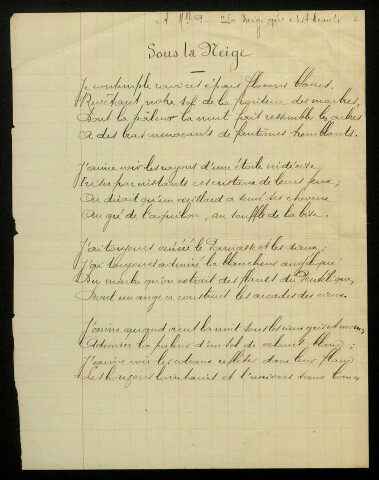 A Mlle G... "La neige qui est beauté
Sous la Neige
Je contemple ravi ces épais flocons blancs,
Revêtant notre sol de la froideur des marbres,
Dont la pâleur la nuit fait ressembler les arbres
A des bras menaçants de fantômes tremblants.
J'aime voir les rayons d'une étoile indécise
Irriter par instants ces cristaux de leurs feux;
On dirait qu'un vieillard a semé ses cheveux
Au gré de l'aquilon, au souffle de la bise.
J'ai toujours vénéré le Parnasse et les dieux;
J'ai toujours admiré la blancheur angélique
Du marbre qu'on extrait des flancs du Pentélique,
Dont un ange a construit les arcades des cieux.
J'aime quand vient la nuit sous les cieux gris et
Admirer la pâleur d'un sol de velours blanc;
J'aime voir les coteaux refléter dans leur flanc
Les horizons lointains et l'univers sans